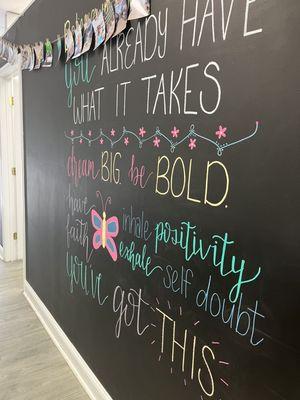 you ALREADY HAVE
WHAT IT TAKES
dream BIG. be BOLD.
have inhale positivity
faith exhale self doubt
you've got THIS